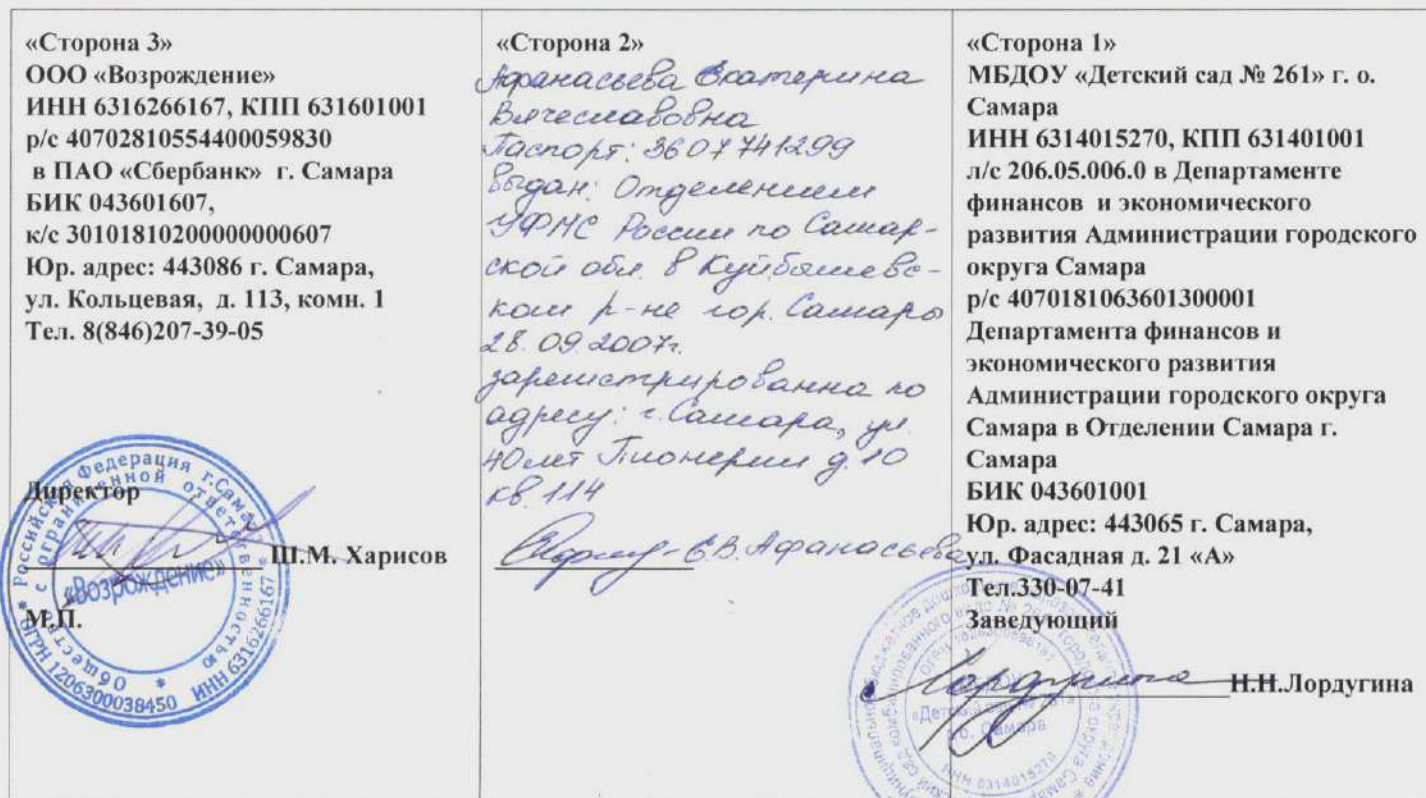 «Сторона 3»
ООО «Возрождение»
ИНН 6316266167, КПП 631601001
р/с 40702810554400059830
в ПАО «Сбербанк» г. Самара
БИК 043601607,
к/с 30101810200000000607
Юр. адрес: 443086 г. Самара,
ул. Кольцевая, д. 113, комн. 1
Тел. 8(846)207-39-05
Директор
Ш.М. Харисов
М.П.
* Российская Федерация г.Самара *
ОГРН 1206300038450 ИНН 6316266167
Общество с ограниченной ответственностью
«Возрождение»
«Сторона 2»
Афанасьева Екатерина
Вячеславовна
Паспорт: 3607 741299
выдан: Отделением
УФМС России по Самар-
ской обл. в Куйбышевс-
ком р-не гор. Самары
28.09.2007г.
зарегистрированна по
адресу: г. Самара, ул.
40 лет Пионерии д. 10
кв. 114
Е.В. Афанасьева
«Сторона 1»
МБДОУ «Детский сад № 261» г. о.
Самара
ИНН 6314015270, КПП 631401001
л/с 206.05.006.0 в Департаменте
финансов и экономического
развития Администрации городского
округа Самара
р/с 4070181063601300001
Департамента финансов и
экономического развития
Администрации городского округа
Самара в Отделении Самара г.
Самара
БИК 043601001
Юр. адрес: 443065 г. Самара,
ул. Фасадная д. 21 «А»
Тел.330-07-41
Заведующий
Н.Н.Лордугина
«Детский сад № 261»
г.о. Самара
ИНН 6314015270